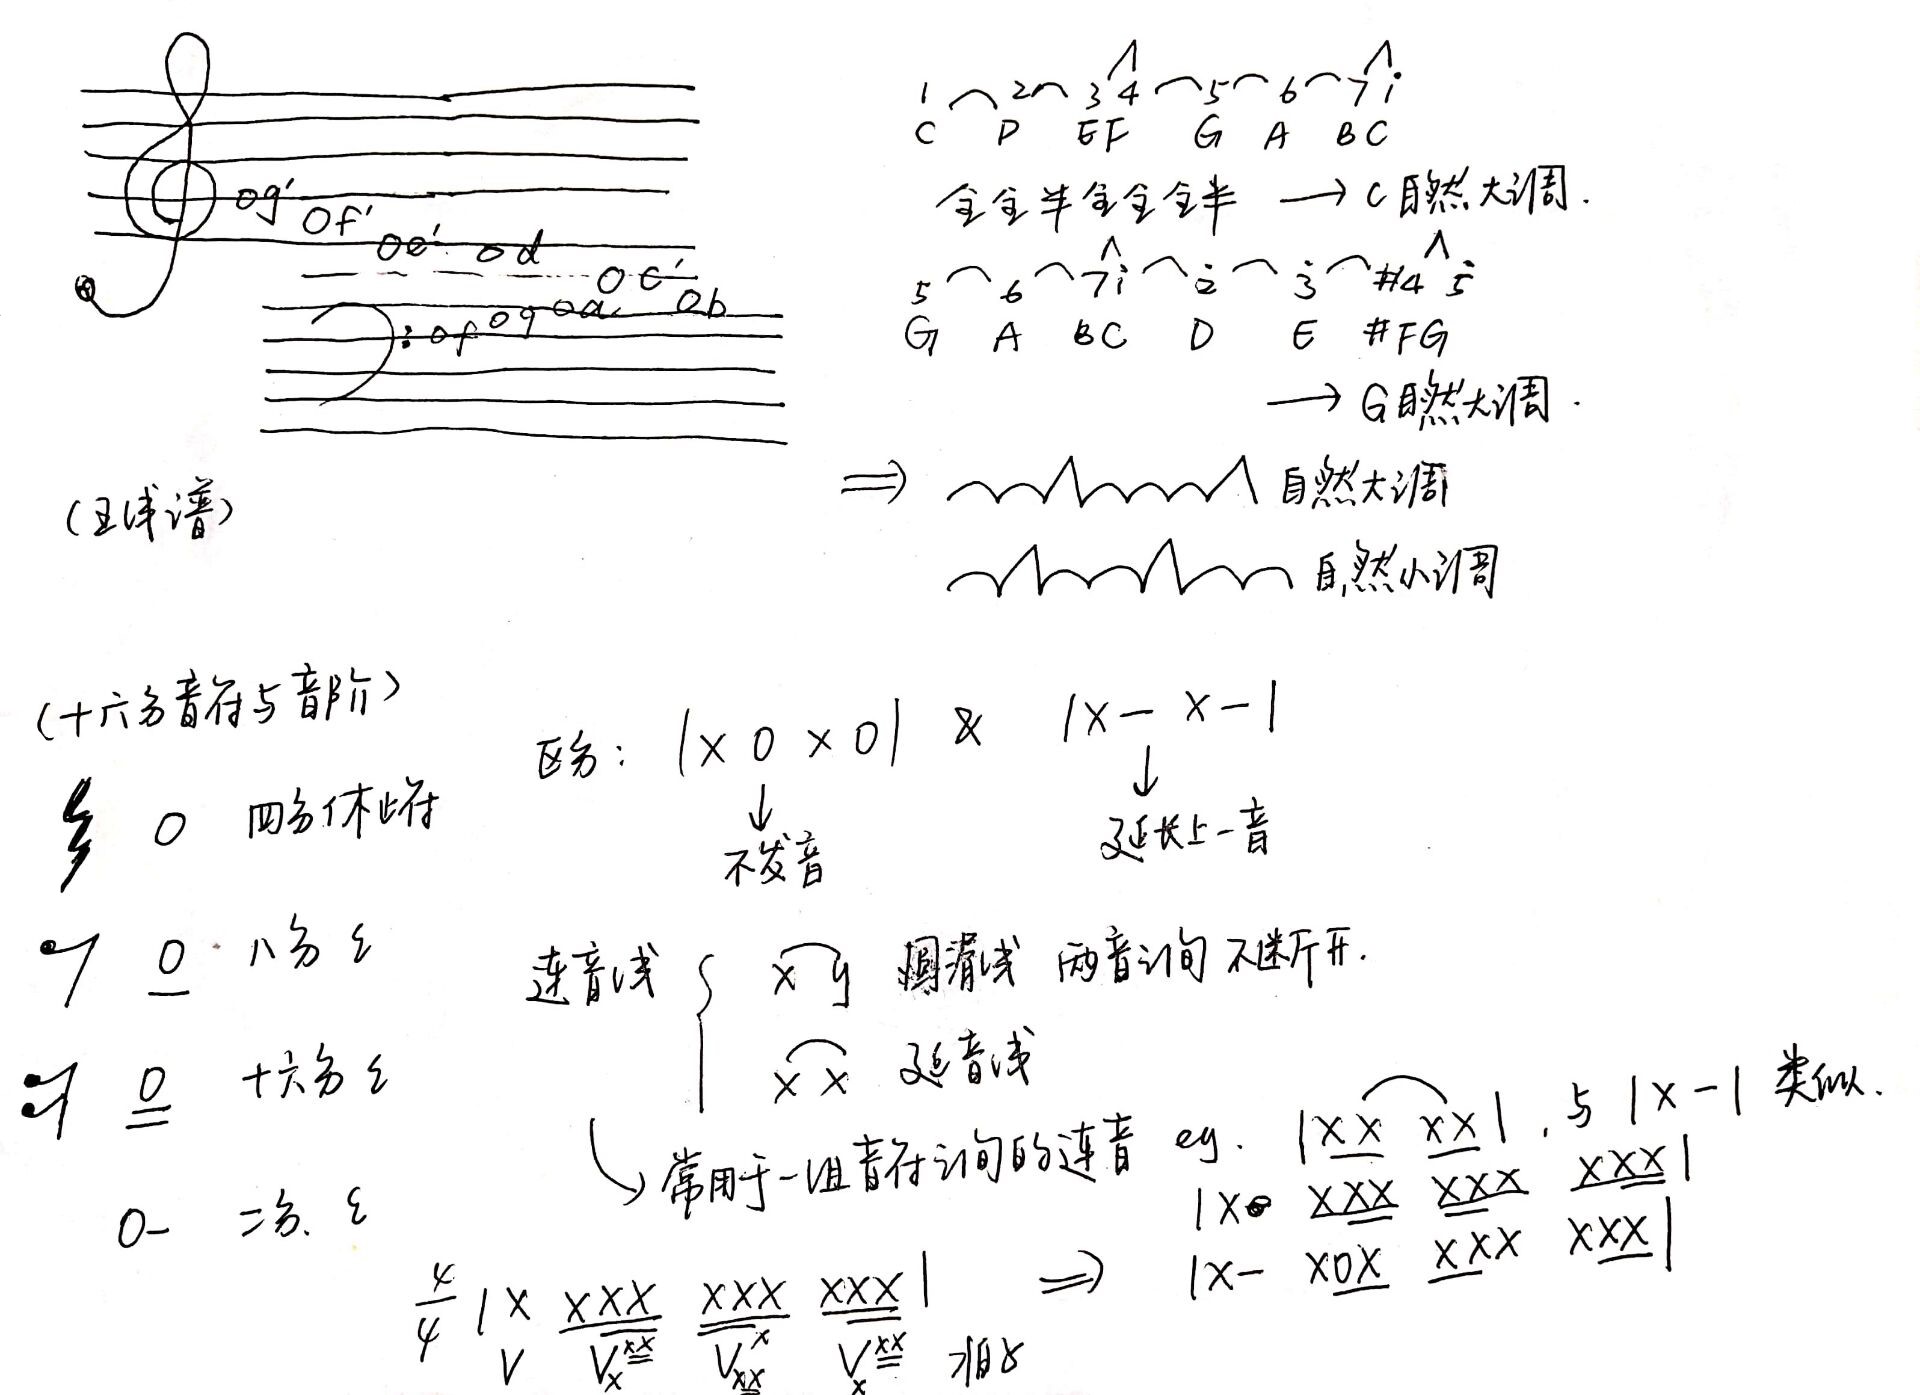 og' of' oe' od oc'
of og oa ob
(五线谱)
1 2 3 4 5 6 7 i
C D E F G A B C
全全半全全全半 → C自然大调.
5 6 7 i 2 3 #4 5
G A B C D E #F G
→ G自然大调.
⇒ 自然大调
自然小调
(十六分音符与音阶)
0 四分休止符
0 八分 ξ
0 十六分 ξ
0- 二分. ξ
区分: |X 0 X 0| & |X - X -|
↓ 不发音
↓ 延长上一音
连音线 { x y 圆滑线 两音之间不断开.
x x 延音线
↳ 常用于一组音符之间的连音 eg. |XX XX|, 与 |X -| 类似.
4/4 |X XXX XXX XXX| ⇒ |X• XXX XXX XXX|
|X- X0X XXX XXX|
V V V V
x xx xx x x xx